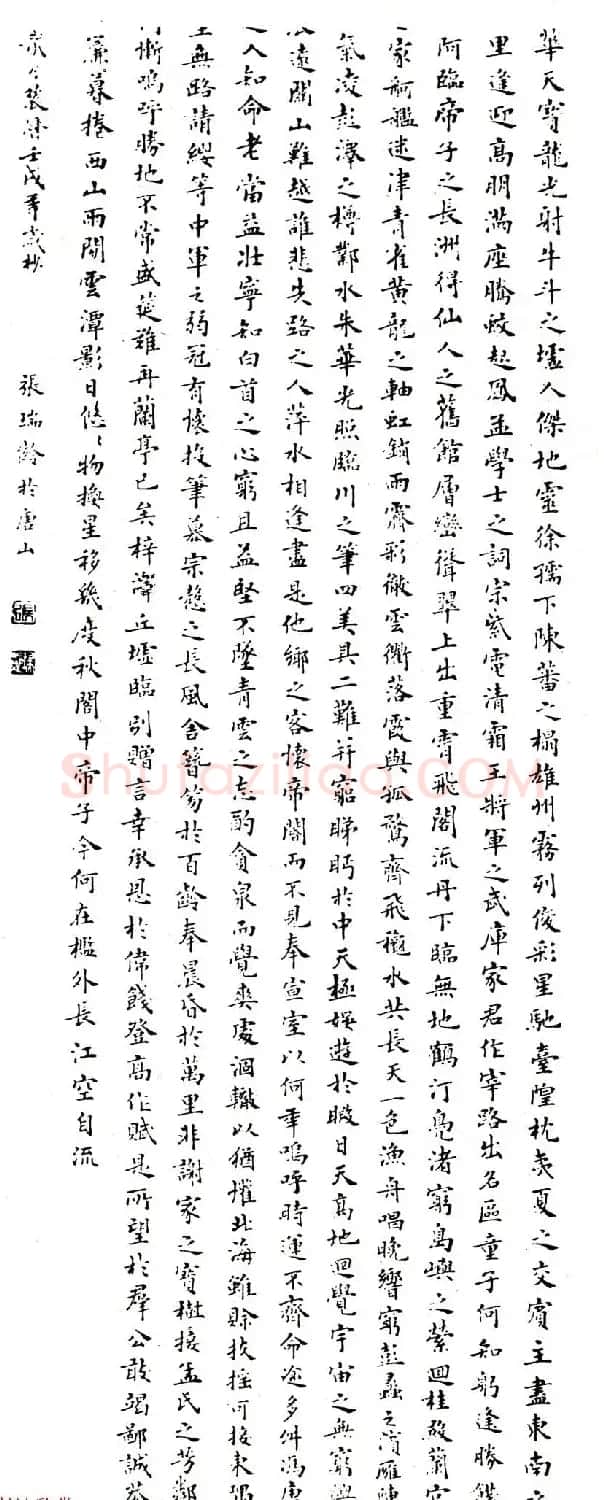 華天寶龍光射牛斗之墟人傑地靈徐孺下陳蕃之榻雄州霧列俊彩星馳臺隍枕夷夏之交賓主盡東南
里逢迎高朋滿座騰蛟起鳳孟學士之詞宗紫電清霜王將軍之武庫家君作宰路出名區童子何知躬逢勝餞
阿臨帝子之長洲得仙人之舊館層巒聳翠上出重霄飛閣流丹下臨無地鶴汀鳧渚窮島嶼之縈迴桂殿蘭宮
家舸艦迷津青雀黃龍之軸虹銷雨霽彩徹雲衢落霞與孤鶩齊飛秋水共長天一色漁舟唱晚響窮彭蠡之濱雁陣
氣凌彭澤之樽鄴水朱華光照臨川之筆四美具二難并窮睇眄於中天極娛遊於暇日天高地迥覺宇宙之無窮興
遠關山難越誰悲失路之人萍水相逢盡是他鄉之客懷帝閽而不見奉宣室以何年嗚呼時運不齊命途多舛馮唐
人知命老當益壯寧知白首之心窮且益堅不墜青雲之志酌貪泉而覺爽處涸轍以猶懽北海雖賒扶搖可接東隅
無路請纓等中軍之弱冠有懷投筆慕宗慤之長風舍簪笏於百齡奉晨昏於萬里非謝家之寶樹接孟氏之芳鄰
慚嗚呼勝地不常盛筵難再蘭亭已矣梓澤丘墟臨別贈言幸承恩於偉餞登高作賦是所望於羣公敢竭鄙誠恭
簾暮捲西山雨閒雲潭影日悠〻物換星移幾度秋閣中帝子今何在檻外長江空自流
壬戌年歲抄
張瑞齡於唐山
Shufaziliao.COM